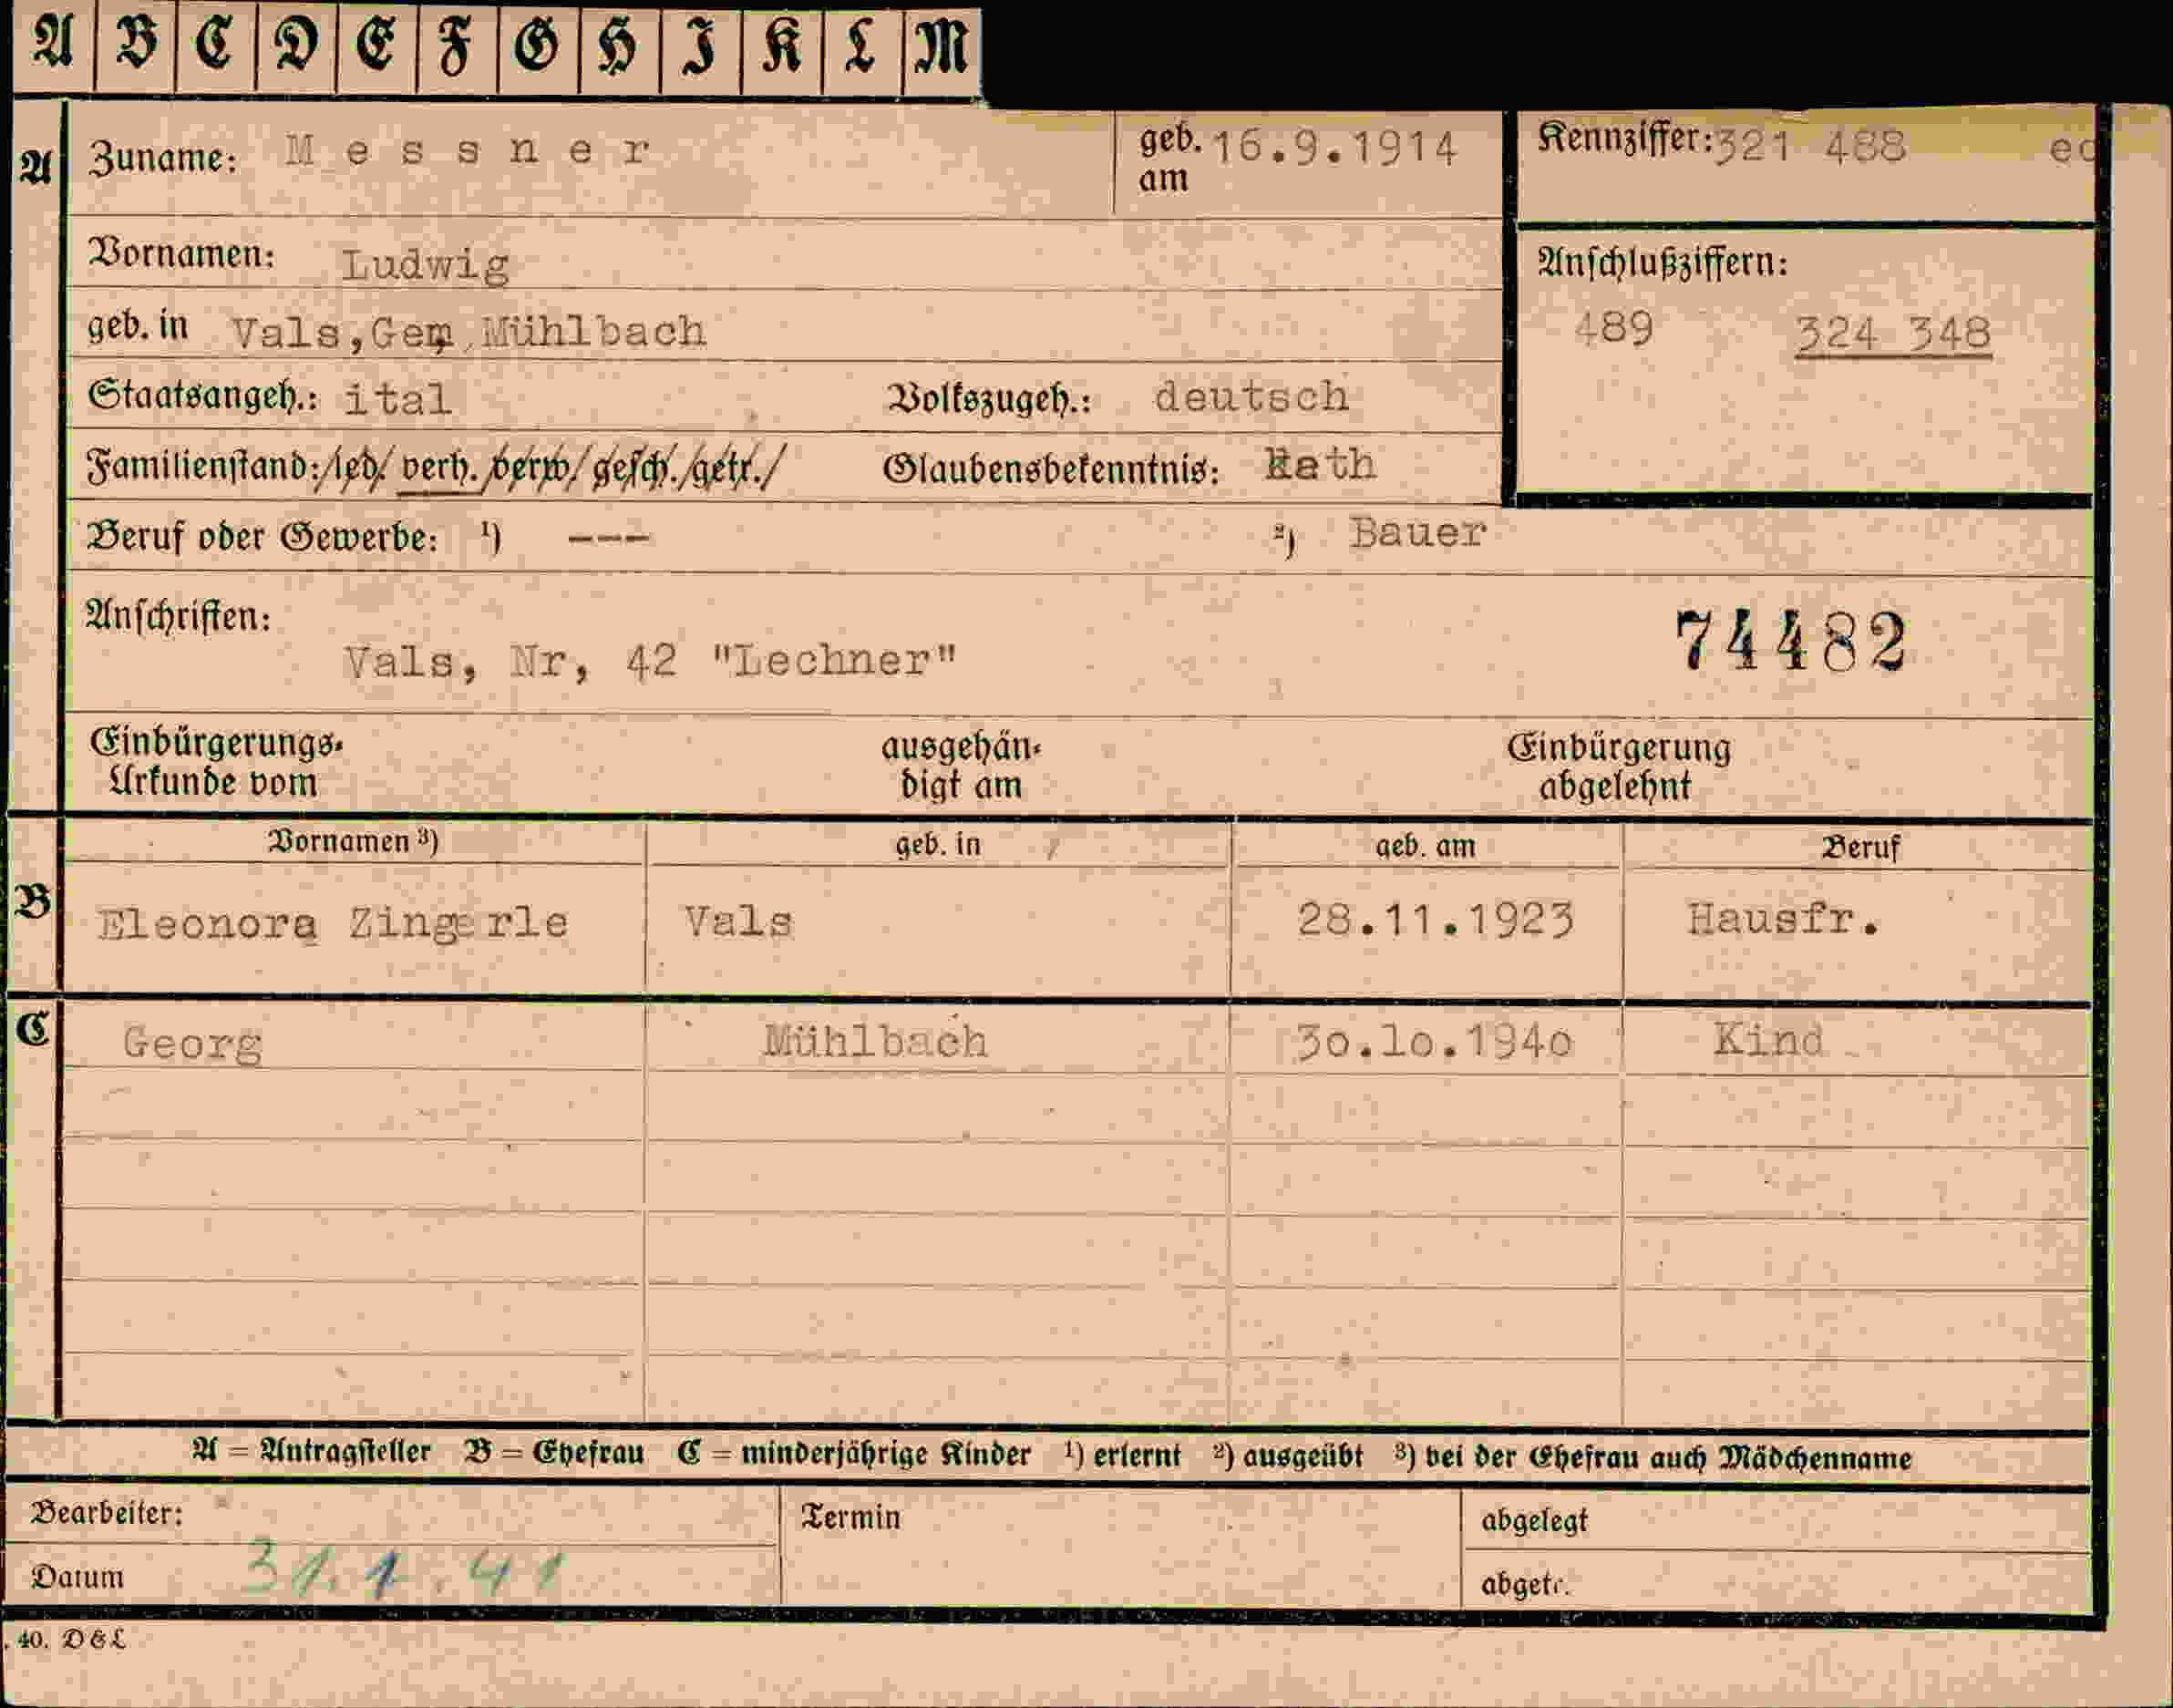 A B C D E F G H I K L M
A Zuname: Messner geb. am 16.9.1914 Kennziffer: 321 488
Vornamen: Ludwig Anschlußziffern:
geb. in Vals, Gem, Mühlbach 489 324 348
Staatsangeh.: ital Volkszugeh.: deutsch
Familienstand: /led/ verh. /verw/ gesch./getr./ Glaubensbekenntnis: Kath
Beruf oder Gewerbe: ¹) --- ²) Bauer
Anschriften: 74482
Vals, Nr, 42 "Lechner"
Einbürgerungs- ausgehän- Einbürgerung
Urkunde vom digt am abgelehnt
Vornamen ³) geb. in geb. am Beruf
B Eleonora Zingerle Vals 28.11.1923 Hausfr.
C Georg Mühlbach 30.10.1940 Kind
A = Antragsteller B = Ehefrau C = minderjährige Kinder ¹) erlernt ²) ausgeübt ³) bei der Ehefrau auch Mädchenname
Bearbeiter: Termin abgelegt
Datum 31.1.41 abgetr.
. 40. D&L